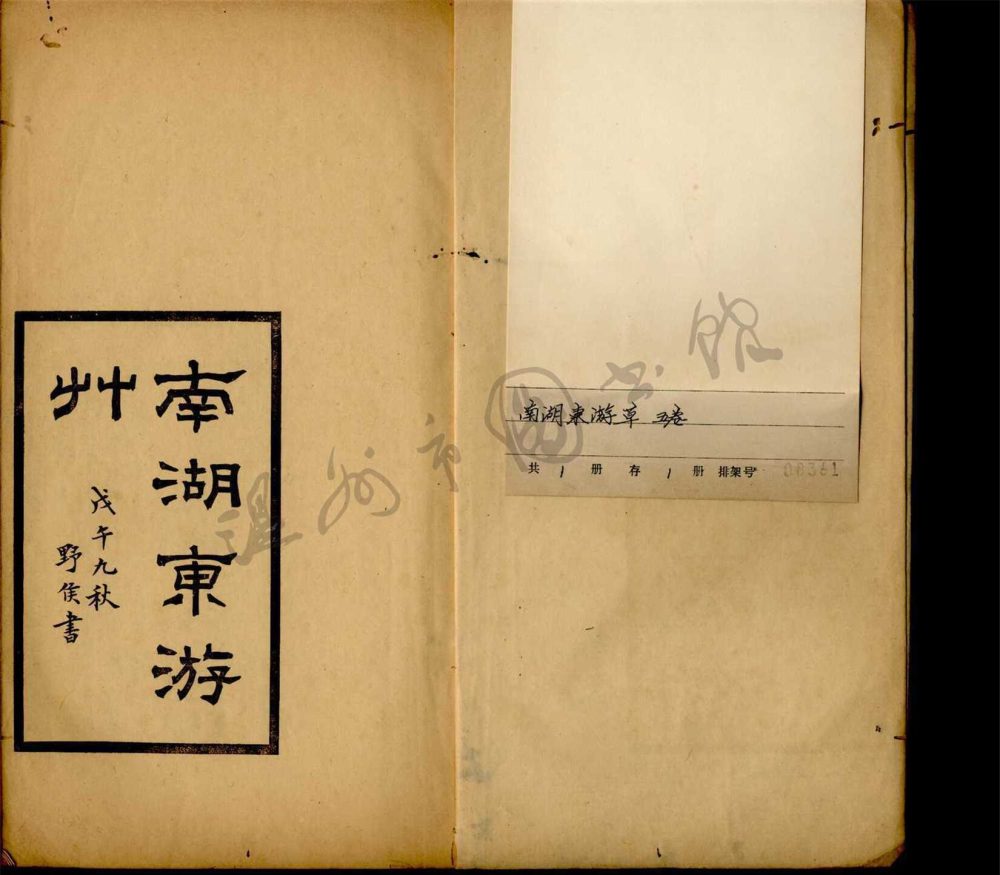 南湖東游
艸
戊午九秋
野侯書
南湖東游草 五卷
共 1 册 存 1 册 排架号 00361
温州市圖书館